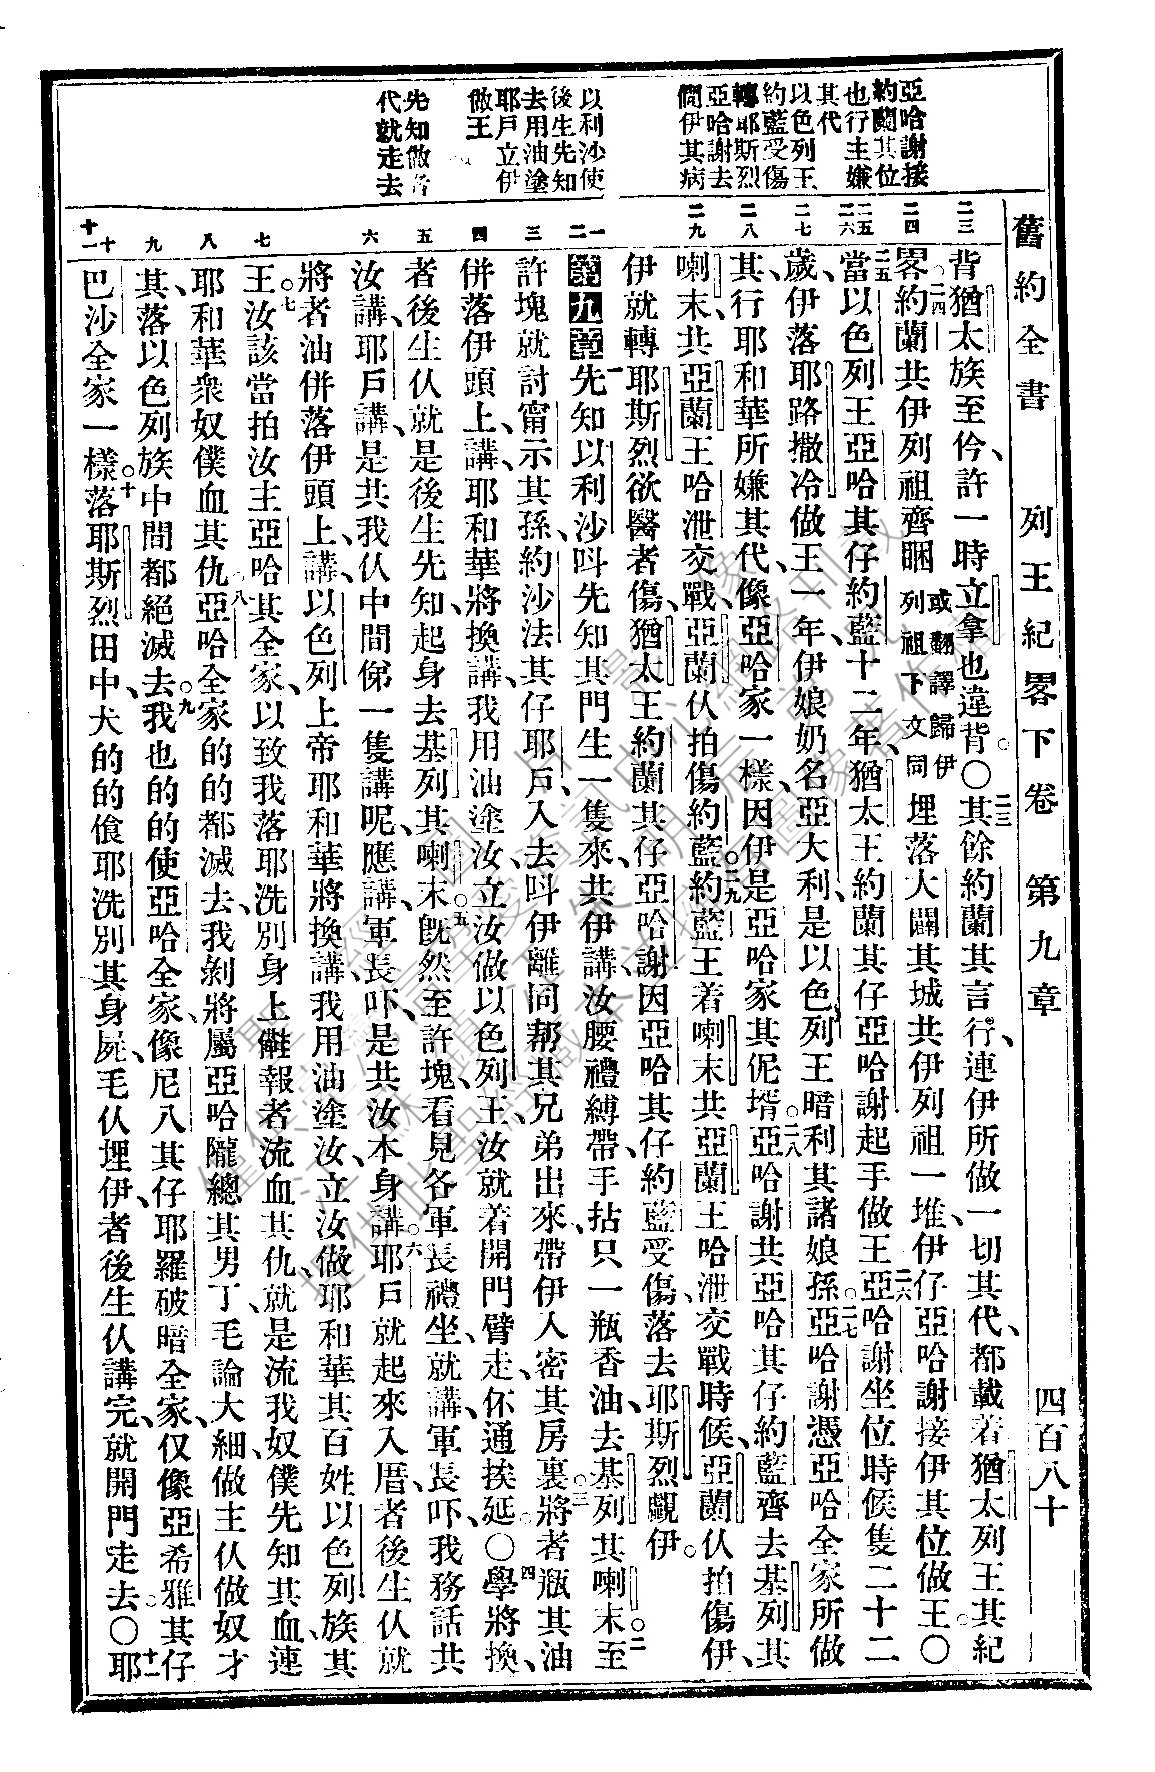 舊約全書 列王紀畧下卷 第九章 四百八十
亞哈謝接
約蘭其位
也行主嫌
其代
以色列王
約藍受傷
轉耶斯烈
亞哈謝去
問伊其病
以利沙使
後生先知
去用油塗
耶戶立伊
做王
先知做者
代就走去
二三
二四
二五
二六
二七
二八
二九
一
二
三
四
五
六
七
八
九
十
十一
背猶太族至仱許一時立拿也違背。〇二三其餘約蘭其言行、連伊所做一切其代、都載着猶太列王其紀
畧。二四約蘭共伊列祖齊睏或翻譯歸伊列祖下文同埋落大闢其城共伊列祖一堆伊仔亞哈謝接伊其位做王〇
二五當以色列王亞哈其仔約藍十二年、猶太王約蘭其仔亞哈謝起手做王。二六亞哈謝坐位時候隻二十二
歲、伊落耶路撒冷做王一年、伊娘奶名亞大利是以色列王暗利其諸娘孫。二七亞哈謝憑亞哈全家所做
其、行耶和華所嫌其代、像亞哈家一樣、因伊是亞哈家其伲壻。二八亞哈謝共亞哈其仔約藍齊去基列其
喇末、共亞蘭王哈泄交戰、亞蘭仈拍傷約藍。二九約藍王着喇末共亞蘭王哈泄交戰時候、亞蘭仈拍傷伊、
伊就轉耶斯烈欲醫者傷、猶太王約蘭其仔亞哈謝因亞哈其仔約藍受傷、落去耶斯烈覷伊。
第九章 一先知以利沙呌先知其門生一隻來、共伊講、汝腰禮縛帶、手拈只一瓶香油、去基列其喇末。二至
許塊就討甯示其孫、約沙法其仔耶戶、入去呌伊離同帮其兄弟出來、帶伊入密其房裏。三將者瓶其油
併落伊頭上、講、耶和華將換講、我用油塗汝、立汝做以色列王、汝就着開門臂走、伓通挨延。〇四學將換、
者後生仈就是後生先知起身去基列其喇末。五旣然至許塊看見各軍長禮坐、就講、軍長吓、我務話共
汝講、耶戶講、是共我仈中間俤一隻講呢、應講、軍長吓、是共汝本身講。六耶戶就起來入厝、者後生仈就
將者油併落伊頭上、講、以色列上帝耶和華將換講、我用油塗汝、立汝做耶和華其百姓以色列族其
王。七汝該當拍汝主亞哈其全家、以致我落耶洗別身上雠報者流血其仇、就是流我奴僕先知其血、連
耶和華衆奴僕血其仇。八亞哈全家的的都滅去、我剝將屬亞哈隴總其男丁、毛論大細、做主仈做奴才
其、落以色列族中間都絕滅去。九我也的的使亞哈全家、像尼八其仔耶羅破暗全家、仅像亞希雅其仔
巴沙全家一樣。十落耶斯烈田中、犬的的飡耶洗別其身屍、毛仈埋伊、者後生仈講完、就開門走去。〇十一耶